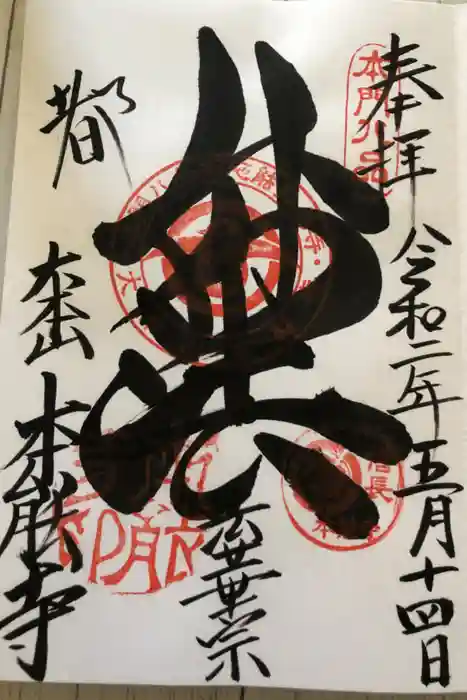 奉拝
令和二年五月十四日
本門八品
妙法
法華宗
信長
都
大本山
本能寺